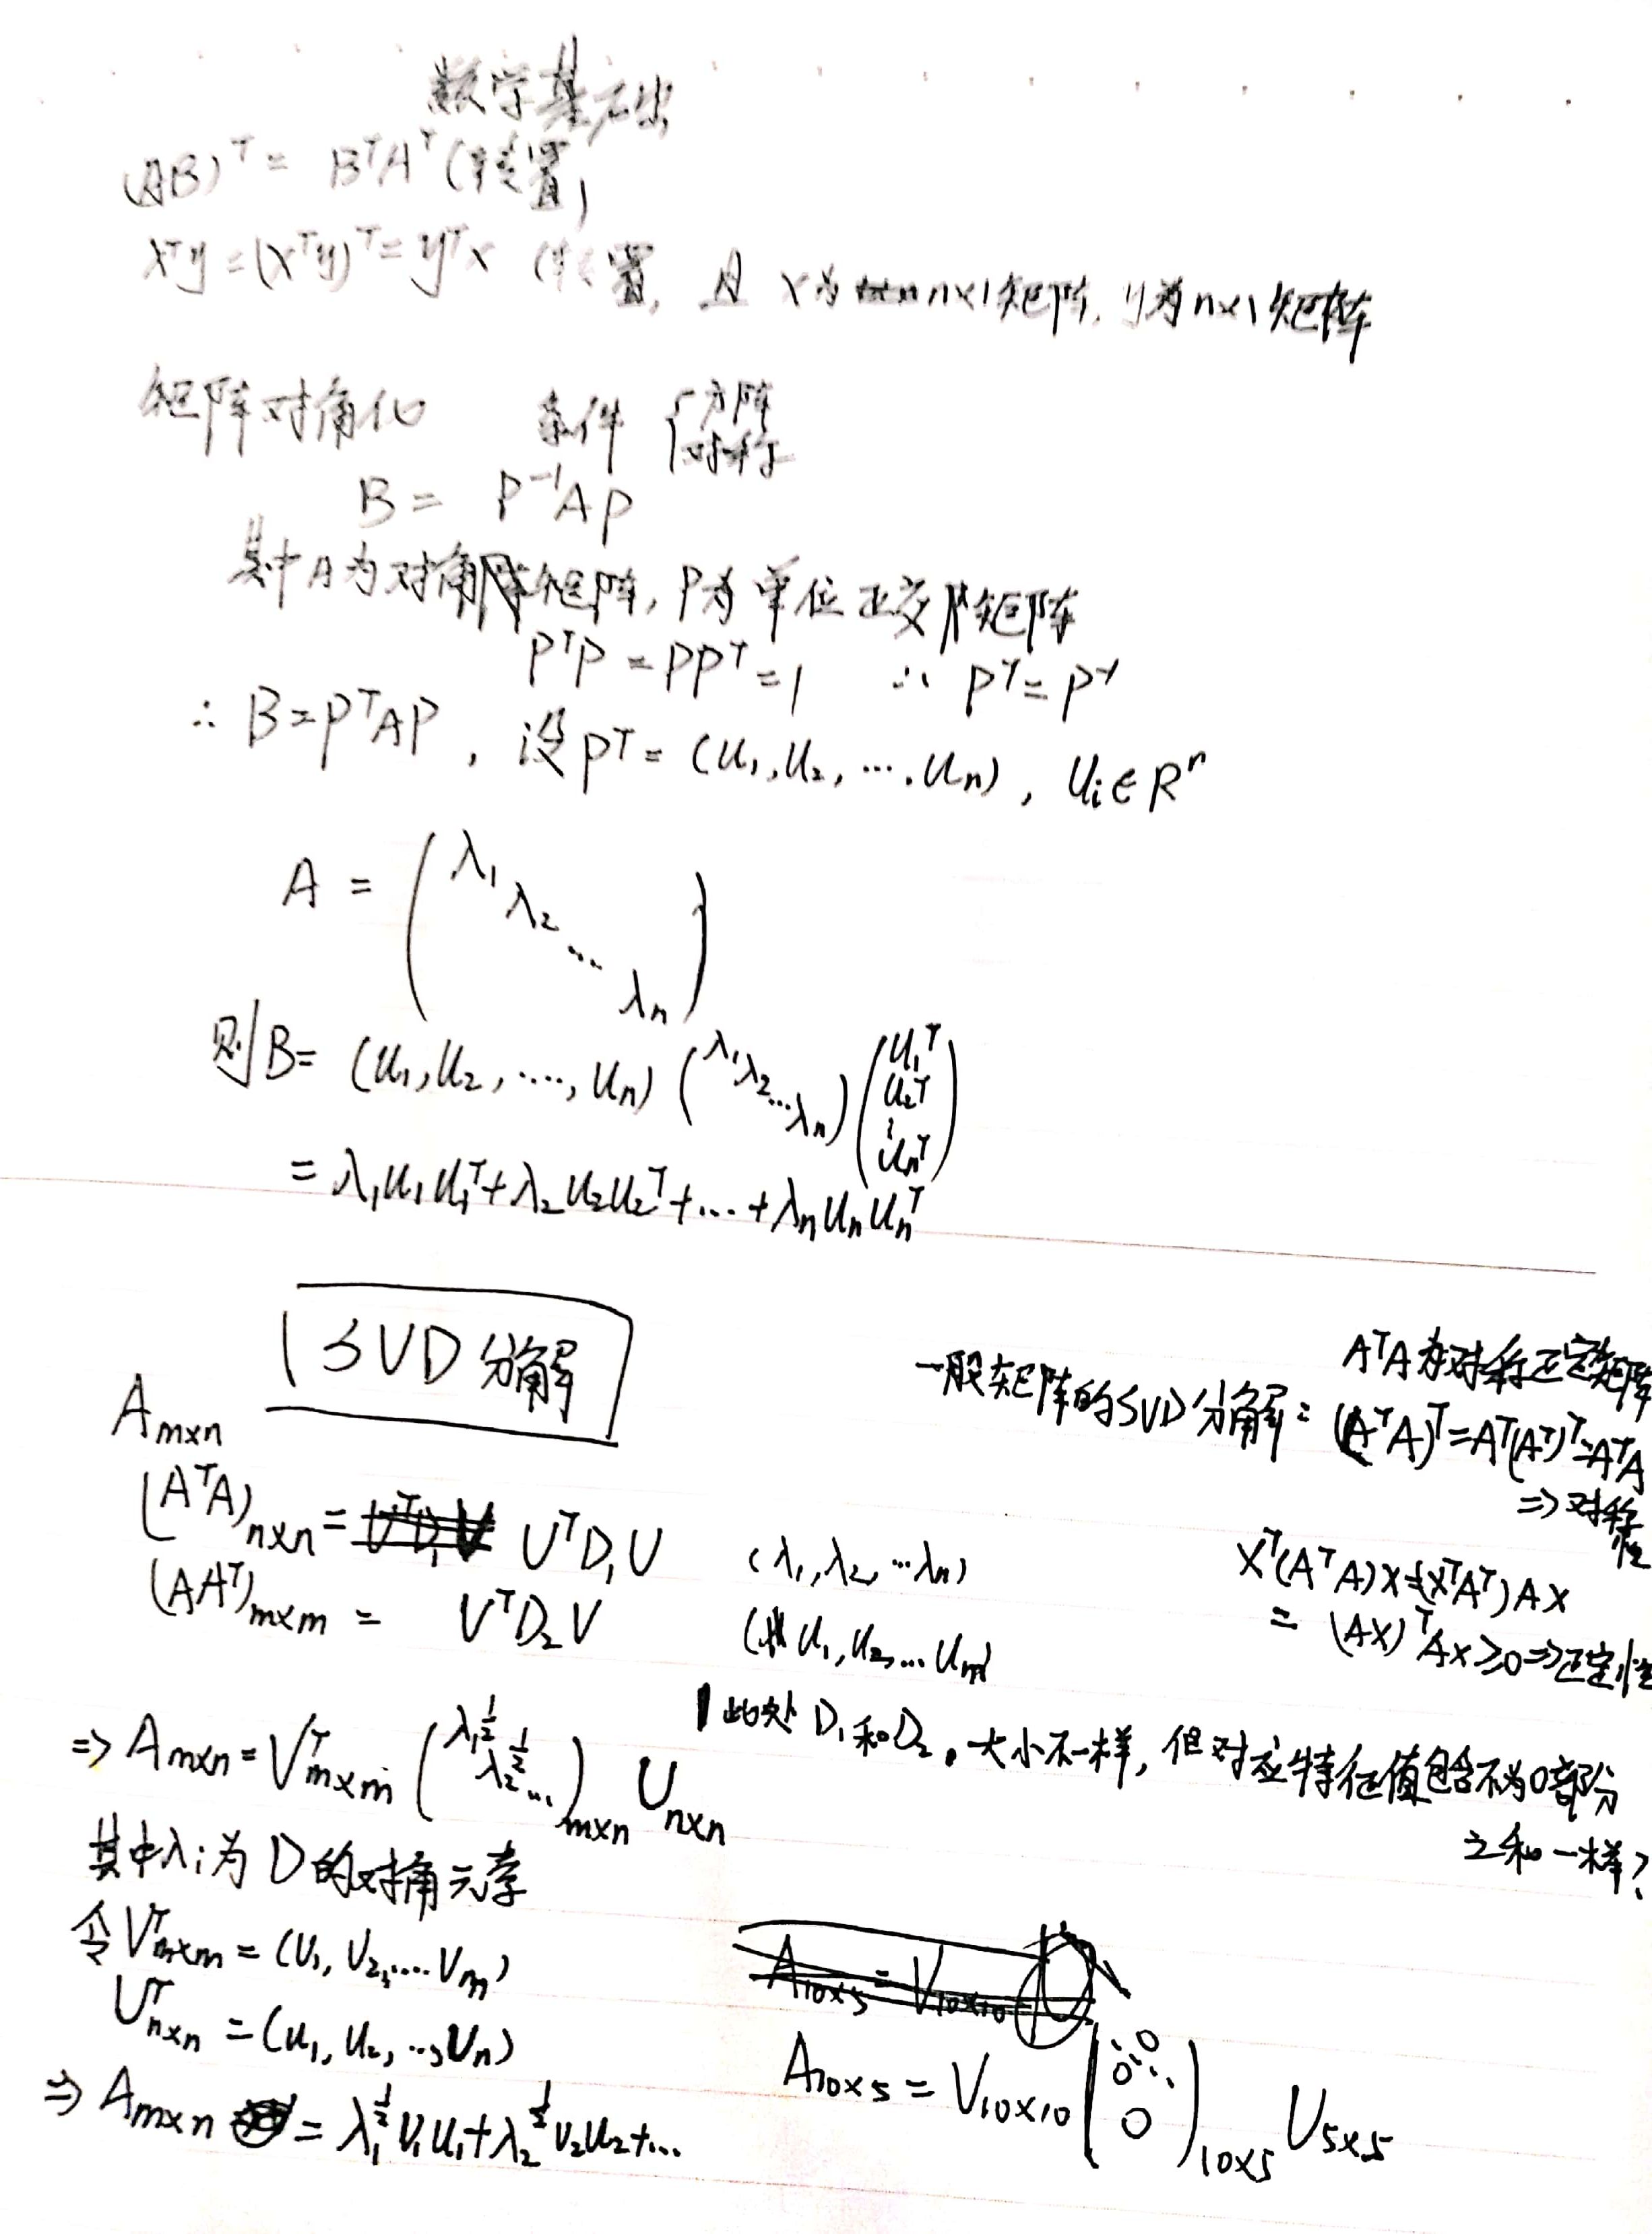 数学基础
(AB)ᵀ = BᵀAᵀ (转置)
xᵀy = (xᵀy)ᵀ = yᵀx (转置, 且 x为 n×1矩阵, y为n×1矩阵
矩阵对角化 条件 { 方阵 对称
B = P⁻¹AP
其中A为对角矩阵, P为单位正交矩阵
PᵀP = PPᵀ = 1 ∴ Pᵀ = P⁻¹
∴ B = PᵀAP, 设Pᵀ = (u₁, u₂, …, uₙ), uᵢ ∈ Rⁿ
A = ( λ₁ λ₂ … λₙ )
则B = (u₁, u₂, …, uₙ) ( λ₁ λ₂ … λₙ ) ( u₁ᵀ u₂ᵀ ⋮ uₙᵀ )
= λ₁u₁u₁ᵀ + λ₂u₂u₂ᵀ + … + λₙuₙuₙᵀ
SVD分解
Aₘₓₙ
(AᵀA)ₙₓₙ = UᵀD₁U (λ₁, λ₂, … λₙ)
(AAᵀ)ₘₓₘ = VᵀD₂V (u₁, u₂, … uₘ)
一般矩阵的SVD分解:
AᵀA为对称正定矩阵
(AᵀA)ᵀ = Aᵀ(Aᵀ)ᵀ = AᵀA
⇒ 对称性
Xᵀ(AᵀA)X = (XᵀAᵀ)AX
= (AX)ᵀAX ≥ 0 ⇒ 正定性
此处D₁和D₂, 大小不一样, 但对应特征值包含不为0部分
之和一样?
⇒ Aₘₓₙ = Vᵀₘₓₘ ( λ₁^½ λ₂^½ … )ₘₓₙ Uₙₓₙ
其中λᵢ为D的对角元素
令Vᵀₘₓₘ = (V₁, V₂, … Vₘ)
Uᵀₙₓₙ = (u₁, u₂, …, Uₙ)
⇒ Aₘₓₙ = λ₁^½ V₁u₁ + λ₂^½ V₂u₂ + …
A₁₀ₓ₅ = V₁₀ₓ₁₀
A₁₀ₓ₅ = V₁₀ₓ₁₀ ( ⋱ 0 0 ⋱ 0 )₁₀ₓ₅ U₅ₓ₅